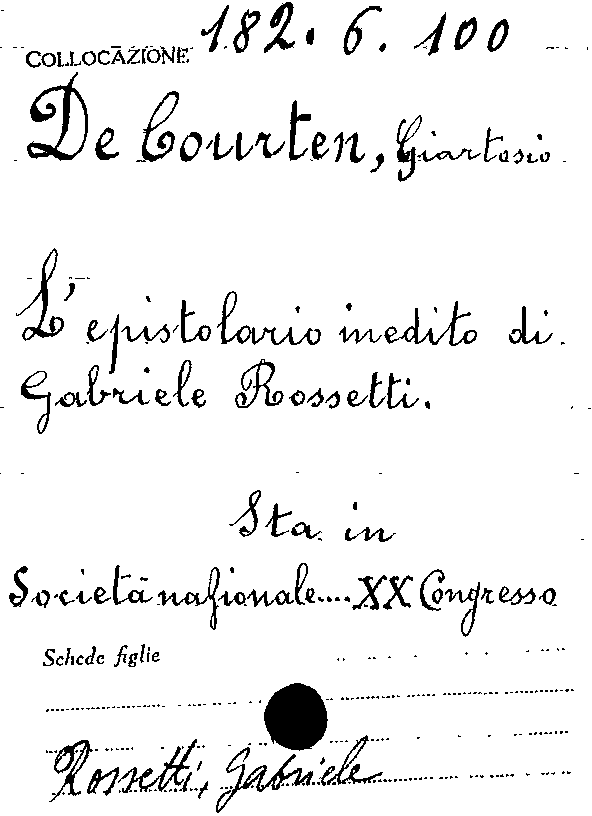 COLLOCAZIONE 182. 6. 100
De Courten, Giartosio
L'epistolario inedito di
Gabriele Rossetti.
Sta in
Società nazionale.... XX Congresso
Schede figlie
Rossetti, Gabriele